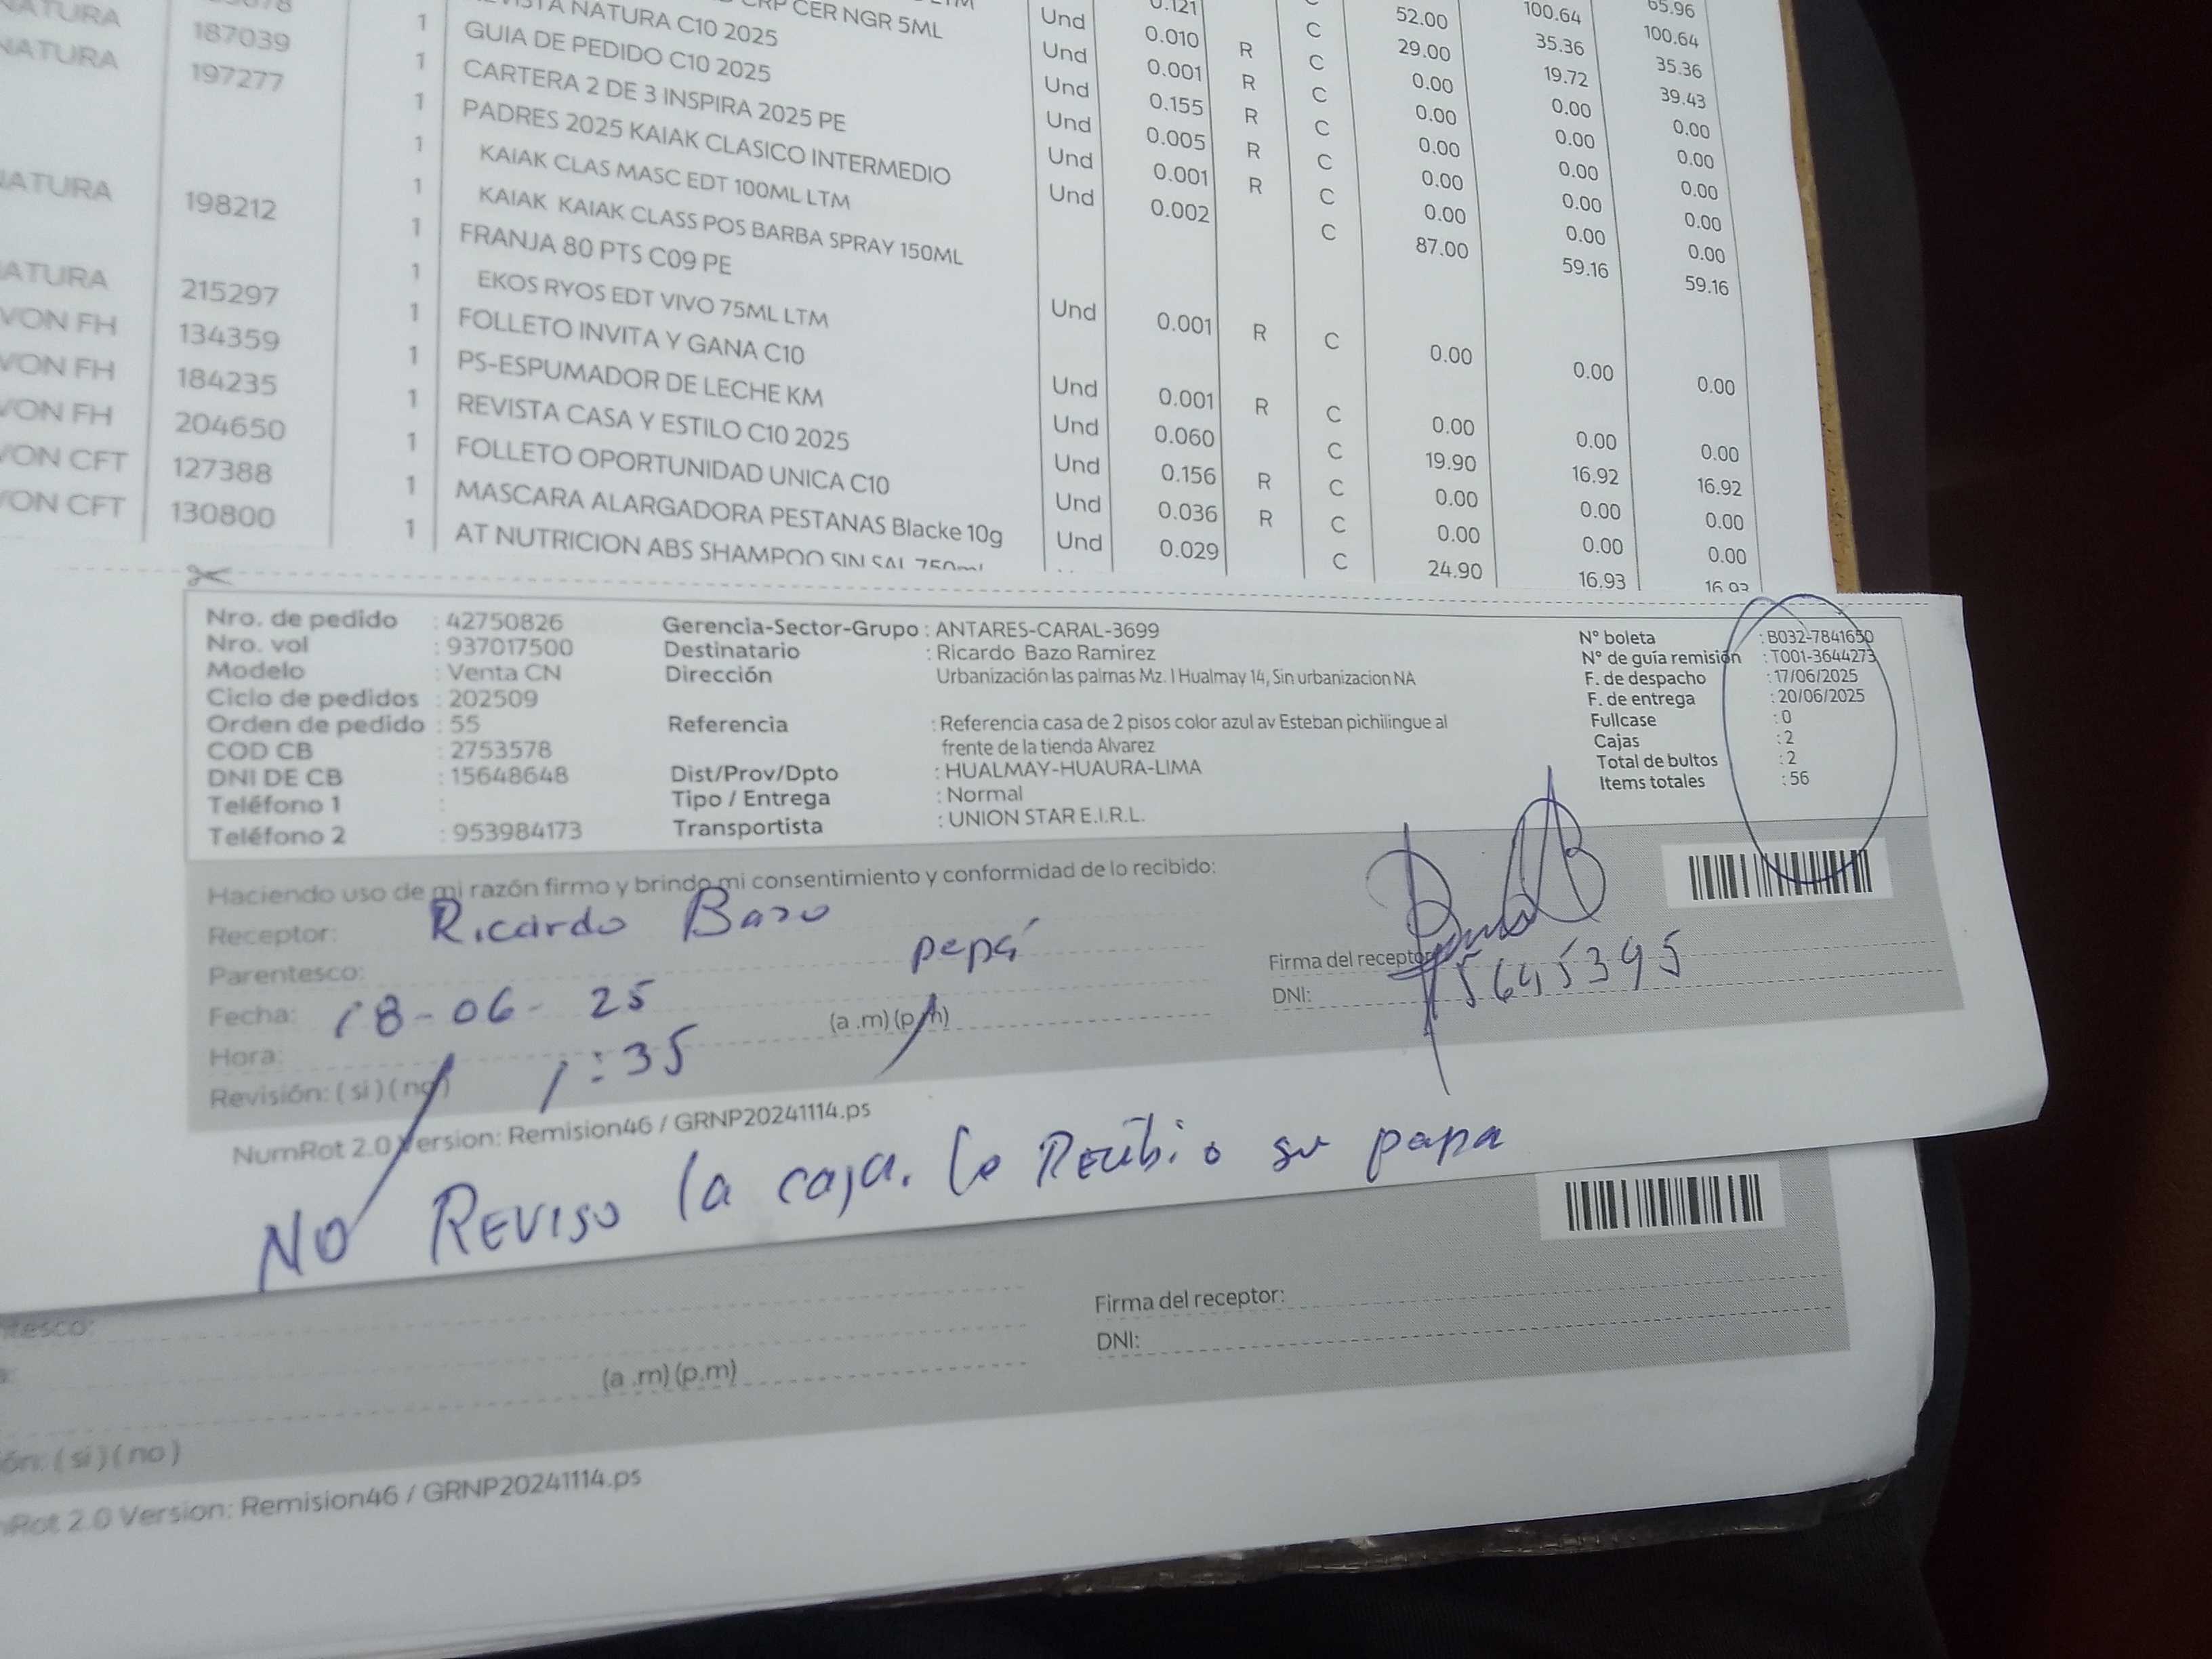 NATURA 187039 1 REVISTA NATURA C10 2025 Und 0.010 R C 29.00 35.36 35.36
NATURA 197277 1 GUIA DE PEDIDO C10 2025 Und 0.001 R C 0.00 19.72 39.43
1 CARTERA 2 DE 3 INSPIRA 2025 PE Und 0.155 R C 0.00 0.00 0.00
1 PADRES 2025 KAIAK CLASICO INTERMEDIO Und 0.005 R C 0.00 0.00 0.00
1 KAIAK CLAS MASC EDT 100ML LTM Und 0.001 R C 0.00 0.00 0.00
NATURA 198212 1 KAIAK KAIAK CLASS POS BARBA SPRAY 150ML Und 0.002 C 87.00 59.16 59.16
1 FRANJA 80 PTS C09 PE
NATURA 215297 1 EKOS RYOS EDT VIVO 75ML LTM Und 0.001 R C 0.00 0.00 0.00
VON FH 134359 1 FOLLETO INVITA Y GANA C10 Und 0.001 R C 0.00 0.00 0.00
VON FH 184235 1 PS-ESPUMADOR DE LECHE KM Und 0.060 C 19.90 16.92 16.92
VON FH 204650 1 REVISTA CASA Y ESTILO C10 2025 Und 0.156 R C 0.00 0.00 0.00
VON CFT 127388 1 FOLLETO OPORTUNIDAD UNICA C10 Und 0.036 R C 0.00 0.00 0.00
VON CFT 130800 1 MASCARA ALARGADORA PESTANAS Blacke 10g Und 0.029 C 24.90 16.93 16.93
1 AT NUTRICION ABS SHAMPOO SIN SAL 750ml
Nro. de pedido : 42750826 Gerencia-Sector-Grupo : ANTARES-CARAL-3699 N° boleta : B032-7841650
Nro. vol : 937017500 Destinatario : Ricardo Bazo Ramirez N° de guía remisión : T001-3644273
Modelo : Venta CN Dirección Urbanización las palmas Mz. I Hualmay 14, Sin urbanizacion NA F. de despacho : 17/06/2025
Ciclo de pedidos : 202509 F. de entrega : 20/06/2025
Orden de pedido : 55 Referencia : Referencia casa de 2 pisos color azul av Esteban pichilingue al Fullcase : 0
COD CB : 2753578 frente de la tienda Alvarez Cajas : 2
DNI DE CB : 15648648 Dist/Prov/Dpto : HUALMAY-HUAURA-LIMA Total de bultos : 2
Teléfono 1 : Tipo / Entrega : Normal Items totales : 56
Teléfono 2 : 953984173 Transportista : UNION STAR E.I.R.L.
Haciendo uso de mi razón firmo y brindo mi consentimiento y conformidad de lo recibido:
Receptor: Ricardo Bazo
Parentesco: papá Firma del receptor:
Fecha: 18-06-25 (a .m) (p.m) DNI: 15645395
Hora: 1:35
Revisión: ( si ) ( no )
NumRot 2.0 Version: Remision46 / GRNP20241114.ps
NO REVISO la caja. lo Recibio su papa
Firma del receptor:
DNI:
(a .m) (p.m)
( si ) ( no )
2.0 Version: Remision46 / GRNP20241114.ps